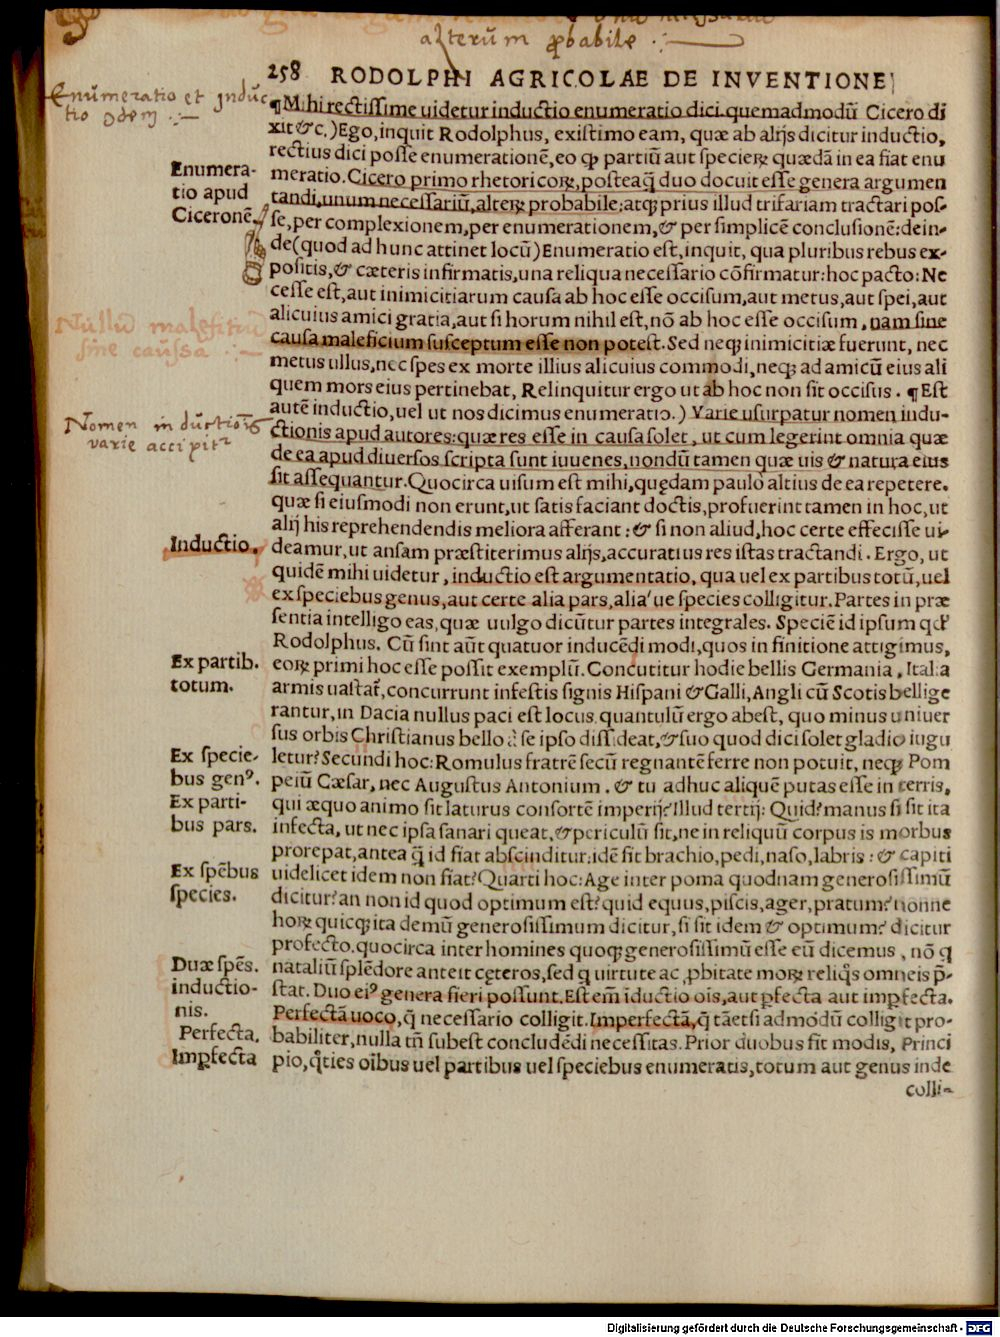 alterum ꝓbabile
258 RODOLPHI AGRICOLAE DE INVENTIONE
Enumeratio et induc
tio
¶Mihi rectissime uidetur inductio enumeratio dici.quemadmodū Cicero di
xit &c.)Ego,inquit Rodolphus, existimo eam, quæ ab alijs dicitur inductio,
rectius dici posse enumerationē,eo ꝙ partiū aut specieꝝ quædā in ea fiat enu
Enumera-
tio apud
Ciceronē.
meratio.Cicero primo rhetoricoꝝ,posteaq̃ duo docuit esse genera argumen
tandi,unum necessariū,alteꝝ probabile:atqꝫ prius illud trifariam tractari pos-
se,per complexionem,per enumerationem,& per simplicē conclusionē:dein-
de(quod ad hunc attinet locū)Enumeratio est,inquit, qua pluribus rebus ex-
positis,& cæteris infirmatis,una reliqua necessario cōfirmatur:hoc pacto:Ne
cesse est,aut inimicitiarum causa ab hoc esse occisum,aut metus,aut spei,aut
alicuius amici gratia,aut si horum nihil est,nō ab hoc esse occisum,nam sine
Nullū malefitiū
sine caussa
causa maleficium susceptum esse non potest.Sed neqꝫ inimicitiæ fuerunt, nec
metus ullus,nec spes ex morte illius alicuius commodi,neqꝫ ad amicū eius ali
quem mors eius pertinebat, Relinquitur ergo ut ab hoc non sit occisus. ¶Est
autē inductio,uel ut nos dicimus enumeratio.) Varie usurpatur nomen indu-
Nomen inductiōis
varie accipit
ctionis apud autores:quæ res esse in causa solet, ut cum legerint omnia quæ
de ea apud diuersos scripta sunt iuuenes,nondū tamen quæ uis & natura eius
sit assequantur.Quocirca uisum est mihi,quędam paulo altius de ea repetere.
quæ si eiusmodi non erunt,ut satis faciant doctis,profuerint tamen in hoc,ut
alij his reprehendendis meliora afferant:& si non aliud,hoc certe effecisse ui-
Inductio.
deamur,ut ansam præstiterimus alijs,accuratius res istas tractandi. Ergo, ut
quidē mihi uidetur, inductio est argumentatio, qua uel ex partibus totū,uel
ex speciebus genus,aut certe alia pars,alia'ue species colligitur.Partes in præ
sentia intelligo eas,quæ uulgo dicūtur partes integrales. Speciē id ipsum qđ
Rodolphus. Cū sint aūt quatuor inducēdi modi,quos in finitione attigimus,
Ex partib.
totum.
eoꝝ primi hoc esse possit exemplū. Concutitur hodie bellis Germania, Italia
armis uastat̄,concurrunt infestis signis Hispani & Galli,Angli cū Scotis bellige
rantur,in Dacia nullus paci est locus.quantulū ergo abest, quo minus uniuer
sus orbis Christianus bello à se ipso dissideat,& suo quod dici solet gladio iugu
Ex specie-
bus genꝰ.
letur? Secundi hoc: Romulus fratrē secū regnantē ferre non potuit, neqꝫ Pom
peiū Cæsar, nec Augustus Antonium. & tu adhuc aliquē putas esse in terris,
Ex parti-
bus pars.
qui æquo animo sit laturus consortē imperij? Illud tertij: Quid? manus si sit ita
infecta, ut nec ipsa sanari queat,& periculū sit,ne in reliquū corpus is morbus
prorepat,antea q̃ id fiat abscinditur:idē fit brachio,pedi,naso,labris:& capiti
Ex spēbus
species.
uidelicet idem non fiat? Quarti hoc: Age inter poma quodnam generosissimū
dicitur? an non id quod optimum est? quid equus,piscis,ager,pratum? nonne
hoꝝ quicqꝫ ita demū generosissimum dicitur,si sit idem & optimum? dicitur
profecto.quocirca inter homines quoqꝫ generosissimū esse eū dicemus, nō q
Duæ spēs.
inductio-
nis.
nataliū splēdore anteit cęteros,sed q uirtute ac ꝓbitate moꝝ reliq̄s omneis p̄-
stat. Duo eiꝰ genera fieri possunt.Est em̄ īductio oīs,aut ꝑfecta aut imꝑfecta.
Perfecta.
Imꝑfecta
Perfectā uoco,q̄ necessario colligit.Imperfectā,q̄ tāetsi admodū colligit pro-
babiliter,nulla tn̄ subest concludēdi necessitas.Prior duobus fit modis, Princi
pio,q̄ties oībus uel partibus uel speciebus enumeratis,totum aut genus inde
colli-
Digitalisierung gefördert durch die Deutsche Forschungsgemeinschaft - DFG